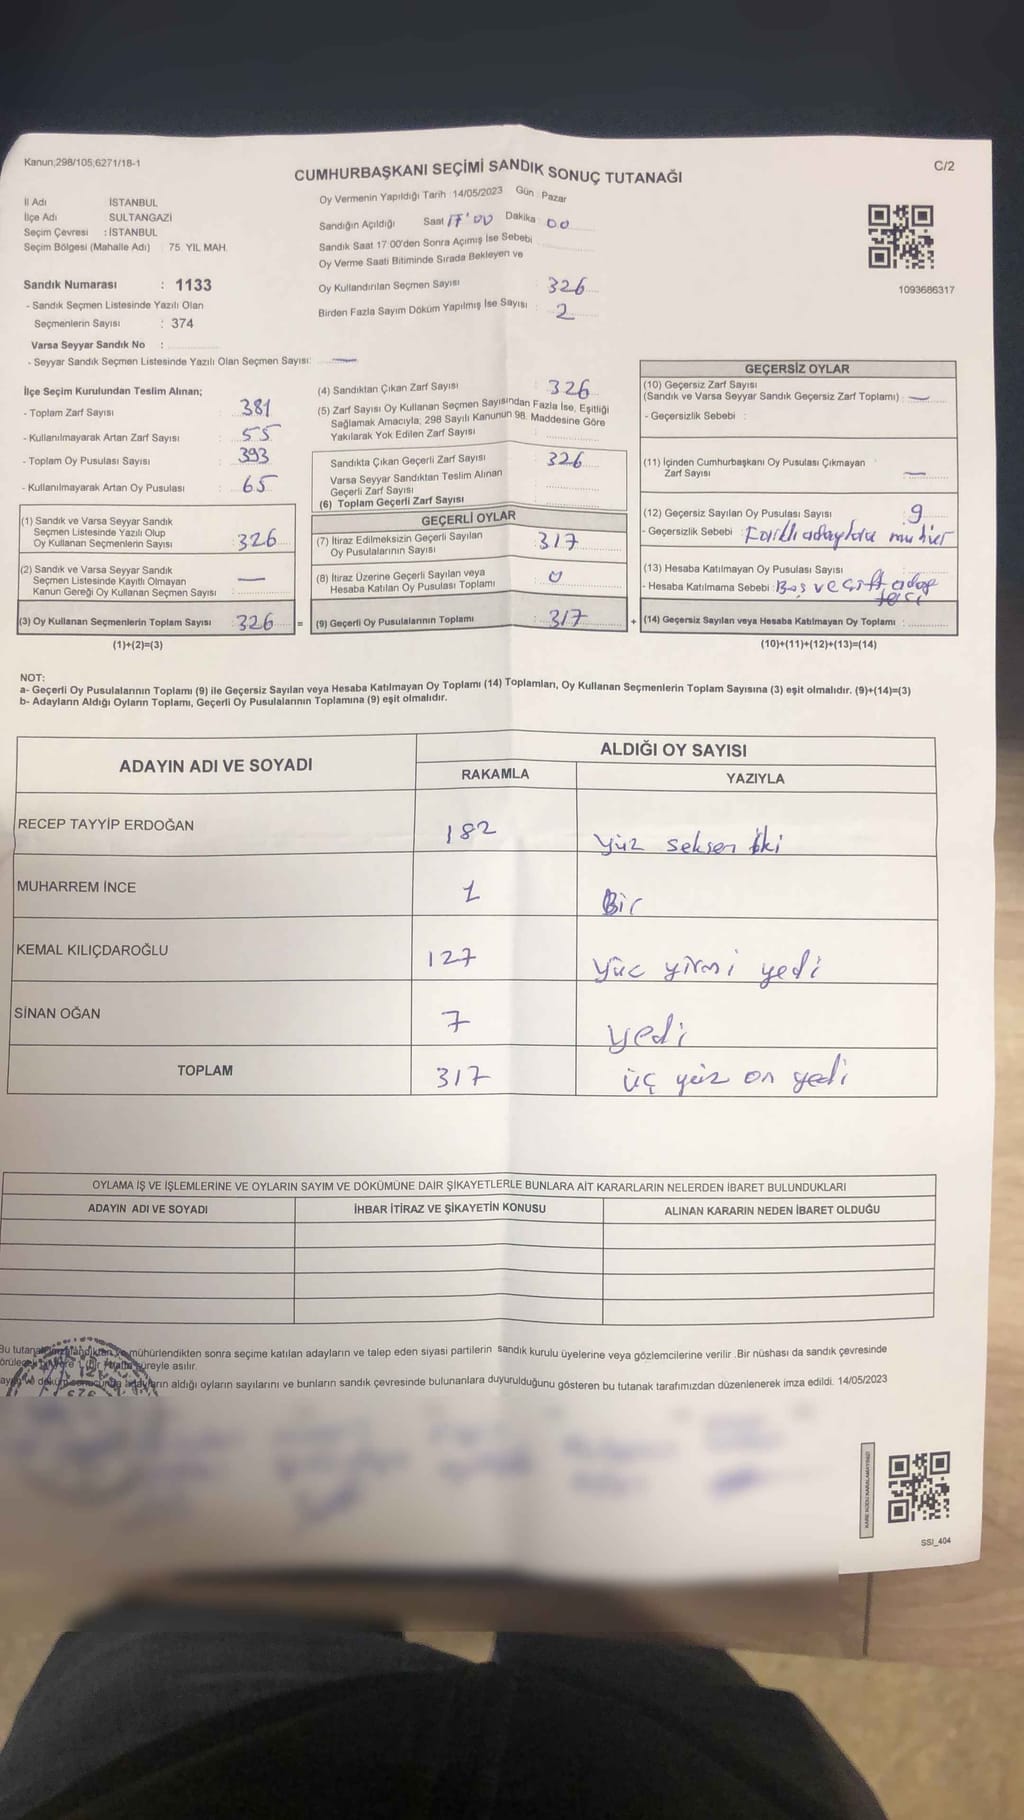 Kanun;298/105;6271/18-1
C/2
CUMHURBAŞKANI SEÇİMİ SANDIK SONUÇ TUTANAĞI
İl Adı İSTANBUL
İlçe Adı SULTANGAZİ
Seçim Çevresi : İSTANBUL
Seçim Bölgesi (Mahalle Adı) 75 YIL MAH.
Sandık Numarası : 1133
- Sandık Seçmen Listesinde Yazılı Olan
Seçmenlerin Sayısı : 374
Varsa Seyyar Sandık No :
- Seyyar Sandık Seçmen Listesinde Yazılı Olan Seçmen Sayısı: —
Oy Vermenin Yapıldığı Tarih : 14/05/2023 Gün : Pazar
Sandığın Açıldığı Saat 17:00 Dakika 00
Sandık Saat 17:00'den Sonra Açımış İse Sebebi
Oy Verme Saati Bitiminde Sırada Bekleyen ve
Oy Kullandırılan Seçmen Sayısı : 326
Birden Fazla Sayım Döküm Yapılmış İse Sayısı : 2
1093686317
İlçe Seçim Kurulundan Teslim Alınan;
- Toplam Zarf Sayısı : 381
- Kullanılmayarak Artan Zarf Sayısı : 55
- Toplam Oy Pusulası Sayısı : 393
- Kullanılmayarak Artan Oy Pusulası : 65
(1) Sandık ve Varsa Seyyar Sandık
Seçmen Listesinde Yazılı Olup
Oy Kullanan Seçmenlerin Sayısı : 326
(2) Sandık ve Varsa Seyyar Sandık
Seçmen Listesinde Kayıtlı Olmayan
Kanun Gereği Oy Kullanan Seçmen Sayısı : —
(3) Oy Kullanan Seçmenlerin Toplam Sayısı : 326 =
(1)+(2)=(3)
(4) Sandıktan Çıkan Zarf Sayısı : 326
(5) Zarf Sayısı Oy Kullanan Seçmen Sayısından Fazla İse, Eşitliği
Sağlamak Amacıyla, 298 Sayılı Kanunun 98. Maddesine Göre
Yakılarak Yok Edilen Zarf Sayısı
Sandıkta Çıkan Geçerli Zarf Sayısı : 326
Varsa Seyyar Sandıktan Teslim Alınan
Geçerli Zarf Sayısı
(6) Toplam Geçerli Zarf Sayısı
GEÇERLİ OYLAR
(7) İtiraz Edilmeksizin Geçerli Sayılan
Oy Pusulalarının Sayısı : 317
(8) İtiraz Üzerine Geçerli Sayılan veya
Hesaba Katılan Oy Pusulası Toplamı : 0
(9) Geçerli Oy Pusulalarının Toplamı : 317 +
GEÇERSİZ OYLAR
(10) Geçersiz Zarf Sayısı
(Sandık ve Varsa Seyyar Sandık Geçersiz Zarf Toplamı) : —
- Geçersizlik Sebebi :
(11) İçinden Cumhurbaşkanı Oy Pusulası Çıkmayan
Zarf Sayısı —
(12) Geçersiz Sayılan Oy Pusulası Sayısı : 9
- Geçersizlik Sebebi : Farklı adaylara
(13) Hesaba Katılmayan Oy Pusulası Sayısı :
- Hesaba Katılmama Sebebi : Boş ve çift aday
(14) Geçersiz Sayılan veya Hesaba Katılmayan Oy Toplamı :
(10)+(11)+(12)+(13)=(14)
NOT:
a- Geçerli Oy Pusulalarının Toplamı (9) ile Geçersiz Sayılan veya Hesaba Katılmayan Oy Toplamı (14) Toplamları, Oy Kullanan Seçmenlerin Toplam Sayısına (3) eşit olmalıdır. (9)+(14)=(3)
b- Adayların Aldığı Oyların Toplamı, Geçerli Oy Pusulalarının Toplamına (9) eşit olmalıdır.
ADAYIN ADI VE SOYADI ALDIĞI OY SAYISI
RAKAMLA YAZIYLA
RECEP TAYYİP ERDOĞAN 182 Yüz seksen iki
MUHARREM İNCE 1 Bir
KEMAL KILIÇDAROĞLU 127 Yüz yirmi yedi
SİNAN OĞAN 7 yedi
TOPLAM 317 üç yüz on yedi
OYLAMA İŞ VE İŞLEMLERİNE VE OYLARIN SAYIM VE DÖKÜMÜNE DAİR ŞİKAYETLERLE BUNLARA AİT KARARLARIN NELERDEN İBARET BULUNDUKLARI
ADAYIN ADI VE SOYADI İHBAR İTİRAZ VE ŞİKAYETİN KONUSU ALINAN KARARIN NEDEN İBARET OLDUĞU
mühürlendikten sonra seçime katılan adayların ve talep eden siyasi partilerin sandık kurulu üyelerine veya gözlemcilerine verilir .Bir nüshası da sandık çevresinde
süreyle asılır.
aldığı oyların sayılarını ve bunların sandık çevresinde bulunanlara duyurulduğunu gösteren bu tutanak tarafımızdan düzenlenerek imza edildi. 14/05/2023
SSI_404